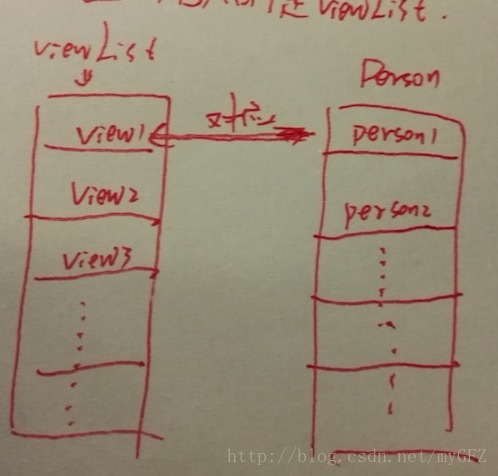 viewList.
viewList
Person
对应
view1
person1
view2
person2
view3
http://blog.csdn.net/myGFZ